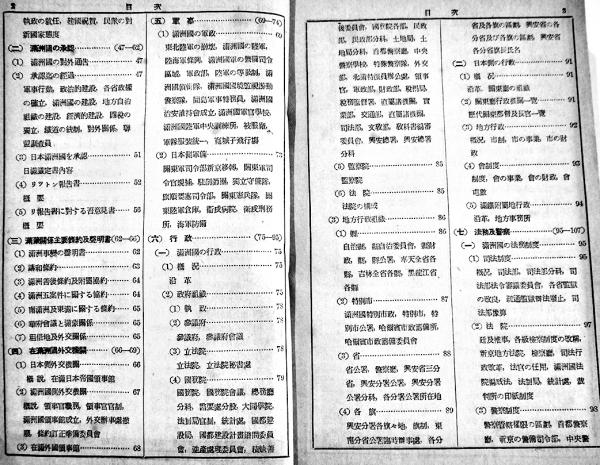 2 目次
執政の就任、建國祝賀、民衆の對
新國家態度
(二) 滿洲の承認 (47—62)
(1) 滿洲國の對外通告 47
(2) 承認迄の經過 47
軍事行動、政治的建設、各省政權
の確立、滿洲國の建設、地方自治
組織の建設、經濟的建設、四稅の
獨立、鐵道の統制、對外關係、聯
盟調査員
(3) 日本滿洲國を承認 51
日滿議定書內容
(4) リツトン報告書 52
概要
(5) リ報告書に對する否意見書 56
概要
(三) 滿蒙關係主要條約及聲明書 (62—66)
(1) 滿洲事變の聲明書 62
(2) 講和條約 63
(3) 滿洲善後條約及附屬協約 64
(4) 滿洲五案件に關する協約 64
(5) 南滿洲及東蒙に關する條約 65
(6) 華府會議と滿蒙關係 65
(7) 租借地及外交機關 65
(四) 在滿洲國外交機關 (66—69)
(1) 日本側外交機關 66
概說、在滿日本帝國領事館
(2) 滿洲國側外交機關 67
概說、領事官職務、領事官官制、
滿洲國領事館成立、外交辦事處撤
廢、條約訂正準備委員會
(3) 在滿外國領事館 68
(五) 軍事 (69—74)
(1) 滿洲國の軍政 69
東北陸軍の崩壞、滿洲國の陸軍、
陸海軍條例、滿洲國の警備司令
區域、軍政部、陸軍の等級制、滿
洲國憲兵隊、滿洲國國境監視遊動
警察隊、間島軍事特務員、滿洲國
治安維持會成立、滿洲國軍官學校、
滿洲國陸軍中央訓練所、被服廠、
軍隊服裝統一、寬城子飛行場
(2) 日本側軍備 73
關東軍司令部新京移轉、關東軍司
令官親補、駐劄師團、獨立守備隊、
旅順要塞司令部、關東憲兵隊、關
東陸軍倉庫、衞戍病院、衞戍刑務
所、海軍防備
(六) 行政 (75—95)
(一) 滿洲國の行政 75
(1) 概況 75
沿革
(2) 政府組織 75
(1) 執政 78
(2) 參議府 78
參議府、參議府會議
(3) 立法院 78
立法院、立法院秘書處
(4) 國務院 79
國務院、國務院會議、總務廳
分科、監要處分設、大同學院
法制局官制、統計處、國都建
設局、國都建設計畫諮問委員
會、逆產處理委員會、積缺善
目次 3
後委員會、國務院各部、民政
部、民政部分科、土地局、土
地局分科、首都警察廳、中央
警察學校、特殊警察隊、外交
部、北滿特派員辦公處、領事
官、軍政部、財政部、稅務局、
稅務監督署、直屬諸機關、實
業部、交通部、直屬諸機關、
司法部、文敎部、敎科書編審
委員會、興安總署、興安總署
分科
(5) 監察院 85
監察院
(6) 法院 85
法院の構成
(3) 地方行政組織 86
(1) 縣 86
自治縣、縣自治委員會、縣財
政、縣、縣公署、奉天全省各
縣、吉林全省各縣、黑龍江省
各縣
(2) 特別市 87
滿洲國特別市政、特別市、特
別市公署、哈爾濱市政籌備所、
哈爾濱市政籌備委員會
(3) 省 88
省公署、警察廳、興安省三分
省、興安分省公署、興安分省
公署分科、各分省公署所在地
(4) 各旗 89
興安分省各旗々地、旗制、東
南分省公署臨時辦事處、各分
省及各旗の區劃、興安省の各
各分省旗長氏名
(二) 日本側の行政 91
(1) 概況 91
沿革、關東廳の組織
(2) 關東廳行政機關一覽 91
歷代關東都督及長官一覽
(3) 地方行政 92
概況、市制、市の事業、市の財
政
(4) 會制度 93
制度、會の事業、會の財政、會
電數
(5) 滿鐵附屬地行政 94
沿革、地方事務所
(七) 法務及警察 (95—107)
(一) 滿洲國の法務制度 95
(1) 司法制度 95
概況、司法部、司法部分科、司
法部法令審議委員會、各省監獄
の改良、疏通監獄辦法廢止、司
法部豫算
(2) 法院 97
經及推事、各級檢察制度の改廢、
新京地方法院、檢察廳、司法行
政改革、法官の任用、滿洲國法
院編成法、法制局、統計處、裁
判所の印紙制度
(3) 警察制度 98
警察官管轄縣の區劃、首都警察
廳、新京の警備司令部、中央警